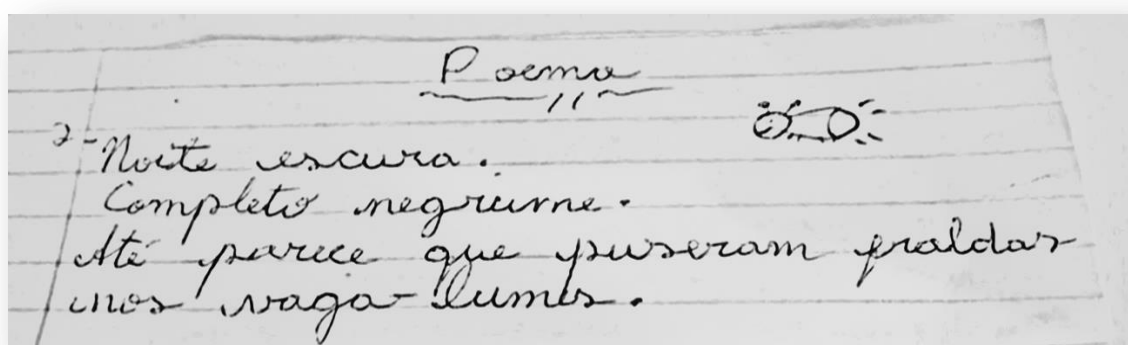 Poema
2- Noite escura.
Completo negrume.
Até parece que puseram fraldas
nos vaga-lumes.